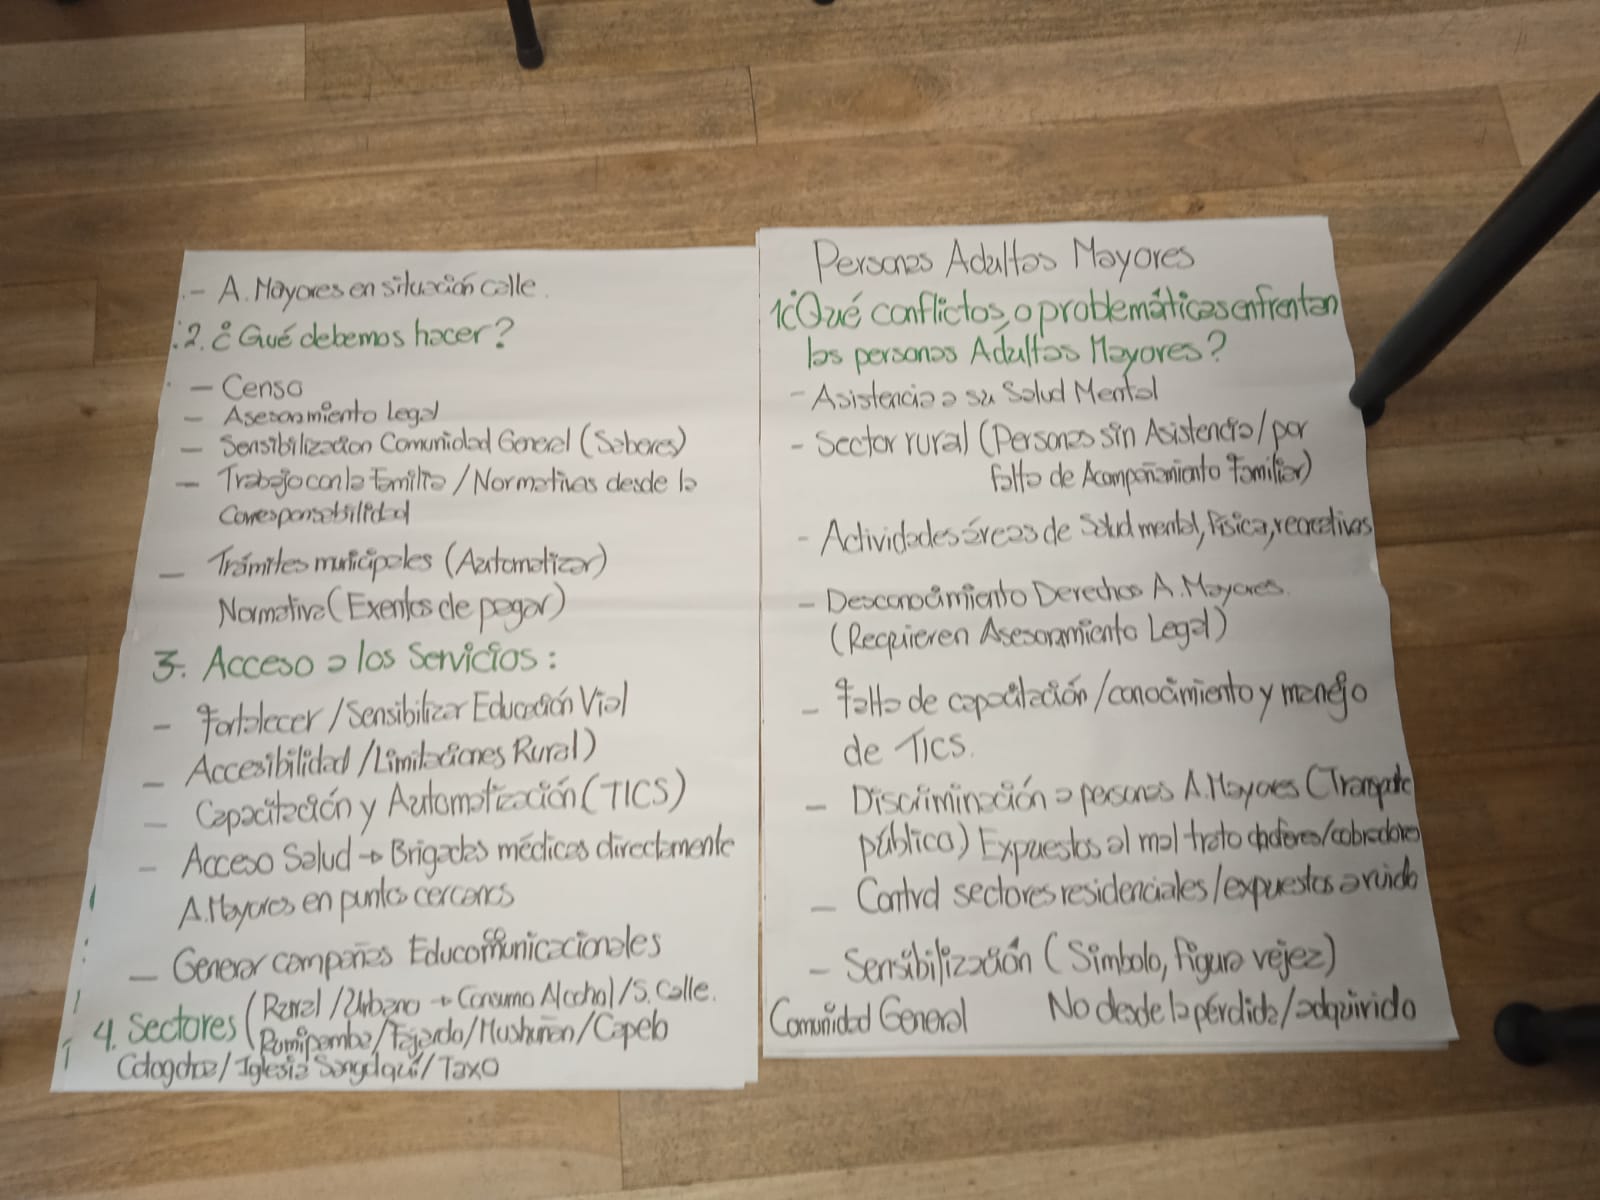 Personas Adultas Mayores
1¿Qué conflictos, o problemáticas enfrentan
las personas Adultas Mayores?
- Asistencia a su Salud Mental
- Sector rural (Personas sin Asistencia/por
falta de Acompañamiento familiar)
- Actividades áreas de Salud mental, física, recreativas
- Desconocimiento Derechos A. Mayores.
(Requieren Asesoramiento Legal)
- Falta de capacitación/conocimiento y manejo
de TICS.
- Discriminación a personas A. Mayores (Transporte
público) Expuestos al mal trato choferes/cobradores
- Control sectores residenciales/expuestos a ruido
- Sensibilización (Símbolo, figura vejez)
Comunidad General No desde la pérdida/adquirido
- A. Mayores en situación calle.
2. ¿Qué debemos hacer?
- Censo
- Asesoramiento Legal
- Sensibilización Comunidad General (Saberes)
- Trabajo con la familia/Normativas desde la
Corresponsabilidad
- Trámites municipales (Automatizar)
Normativa (Exentos de pagar)
3. Acceso a los Servicios:
- Fortalecer/Sensibilizar Educación Vial
- Accesibilidad/Limitaciones Rural)
- Capacitación y Automatización (TICS)
- Acceso Salud → Brigadas médicas directamente
A. Mayores en puntos cercanos
- Generar campañas Educomunicacionales
4. Sectores (Rural/Urbano → Consumo Alcohol/S. Calle.
(Rumipamba/Fajardo/Mushuñan/Capelo
Cotogchoa/Iglesia Sangolquí/Taxo